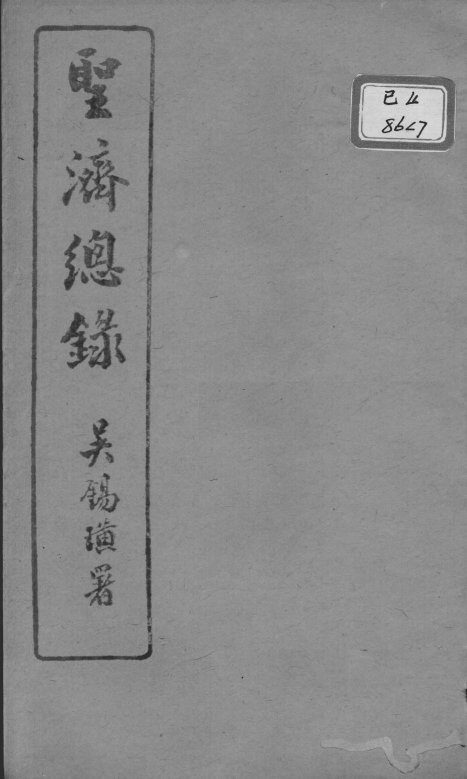 聖濟總錄
吳錫璜署
已山
8647